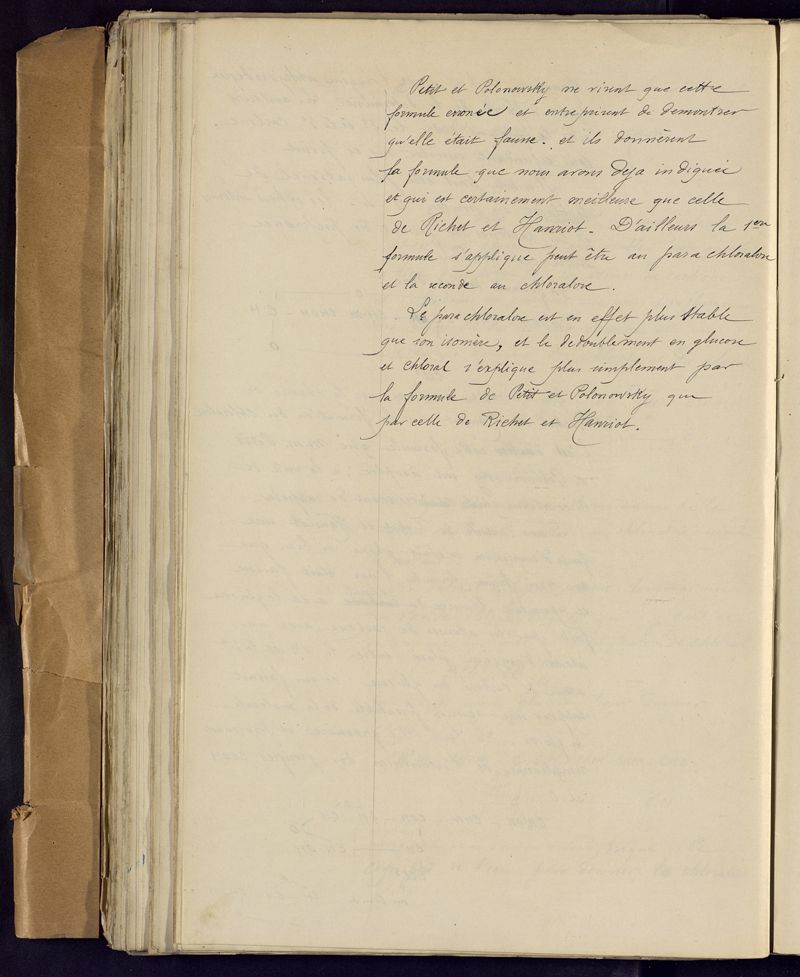 Petit et Polonowsky ne virent que cette
formule eronée et entreprirent de demontrer
qu'elle était fausse. et ils donnèrent
la formule que nous avons deja indiquée
et qui est certainement meilleure que celle
de Richet et Hanriot. D'ailleurs la 1ere
formule s'applique peut être au parachloralose
et la seconde au chloralose.
Le parachloralose est en effet plus stable
que son isomère, et le dedoublement en glucose
et chloral s'explique plus simplement par
la formule de Petit et Polonowsky que
par celle de Richet et Hanriot.